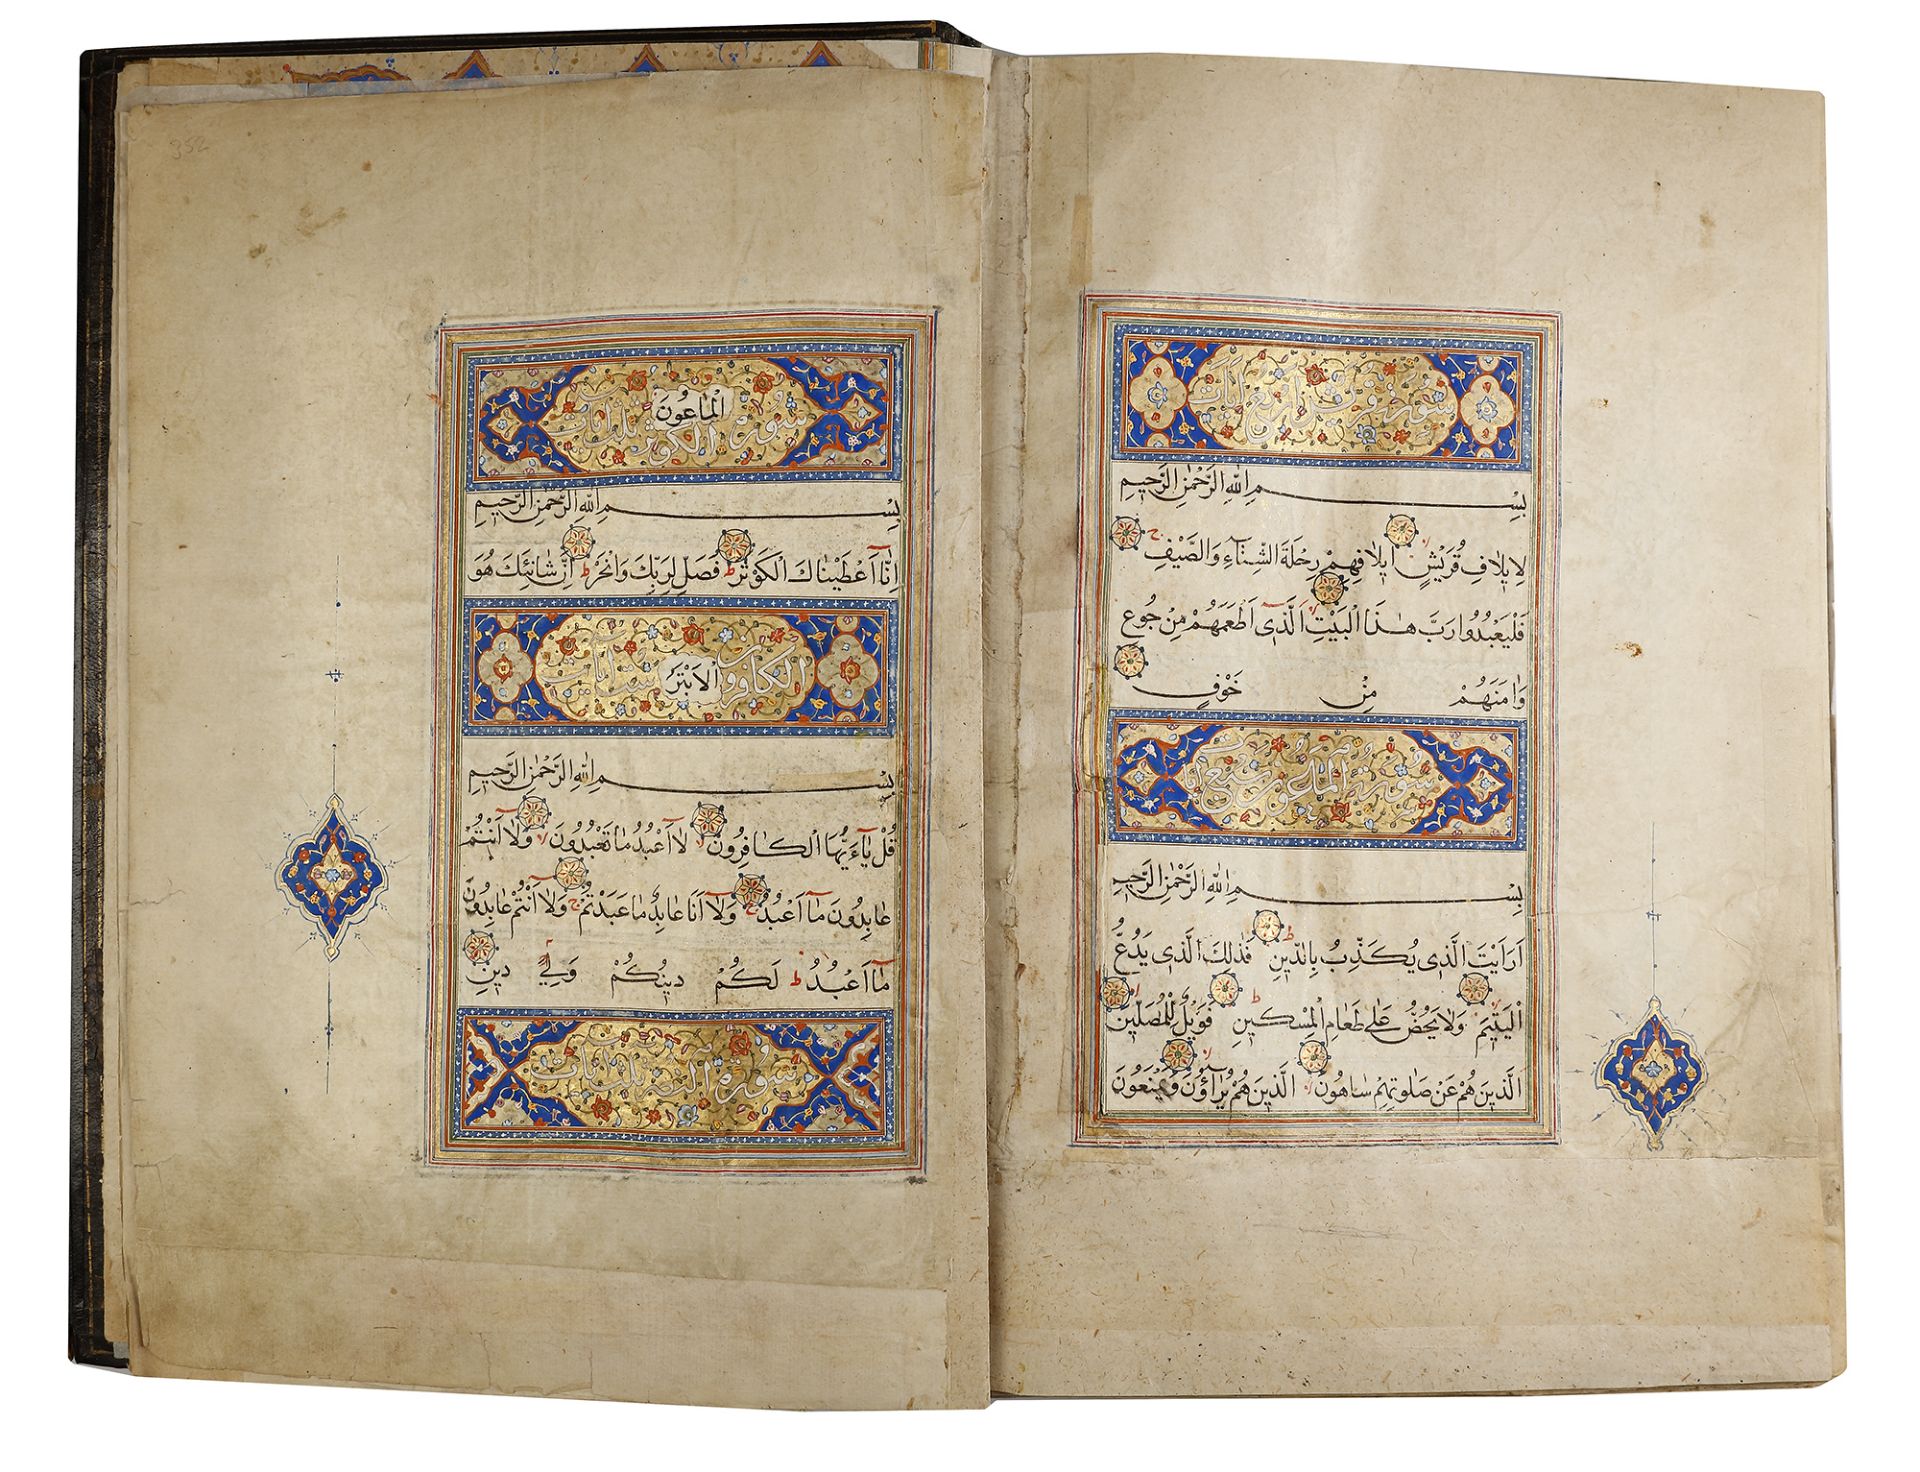 سورة قريش اربع ايات
بِسْمِ اللهِ الرَّحْمٰنِ الرَّحِيمِ
لِإِيلَافِ قُرَيْشٍ إِيلَافِهِمْ رِحْلَةَ الشِّتَآءِ وَالصَّيْفِ
فَلْيَعْبُدُوا رَبَّ هٰذَا الْبَيْتِ الَّذِىٓ اَطْعَمَهُمْ مِنْ جُوعٍ
وَاٰمَنَهُمْ مِنْ خَوْفٍ
سورة الماعون سبع ايات
بِسْمِ اللهِ الرَّحْمٰنِ الرَّحِيمِ
اَرَاَيْتَ الَّذِى يُكَذِّبُ بِالدِّينِ فَذٰلِكَ الَّذِى يَدُعُّ
الْيَتِيمَ وَلَا يَحُضُّ عَلٰى طَعَامِ الْمِسْكِينِ فَوَيْلٌ لِلْمُصَلِّينَ
الَّذِينَ هُمْ عَنْ صَلَاتِهِمْ سَاهُونَ الَّذِينَ هُمْ يُرَآؤُنَ وَيَمْنَعُونَ
352
الْمَاعُونَ
سورة الكوثر ثلث ايات
بِسْمِ اللهِ الرَّحْمٰنِ الرَّحِيمِ
اِنَّآ اَعْطَيْنَاكَ الْكَوْثَرَ ط فَصَلِّ لِرَبِّكَ وَانْحَرْ ط اِنَّ شَانِئَكَ هُوَ
الْاَبْتَرُ
الكافرون ست ايات
بِسْمِ اللهِ الرَّحْمٰنِ الرَّحِيمِ
قُلْ يَآ اَيُّهَا الْكَافِرُونَ لَآ اَعْبُدُ مَا تَعْبُدُونَ وَلَآ اَنْتُمْ
عَابِدُونَ مَآ اَعْبُدُ ج وَلَآ اَنَا عَابِدٌ مَا عَبَدْتُمْ ج وَلَآ اَنْتُمْ عَابِدُونَ
مَآ اَعْبُدُ ط لَكُمْ دِينُكُمْ وَلِيَ دِينِ
سورة النصر ثلث ايات